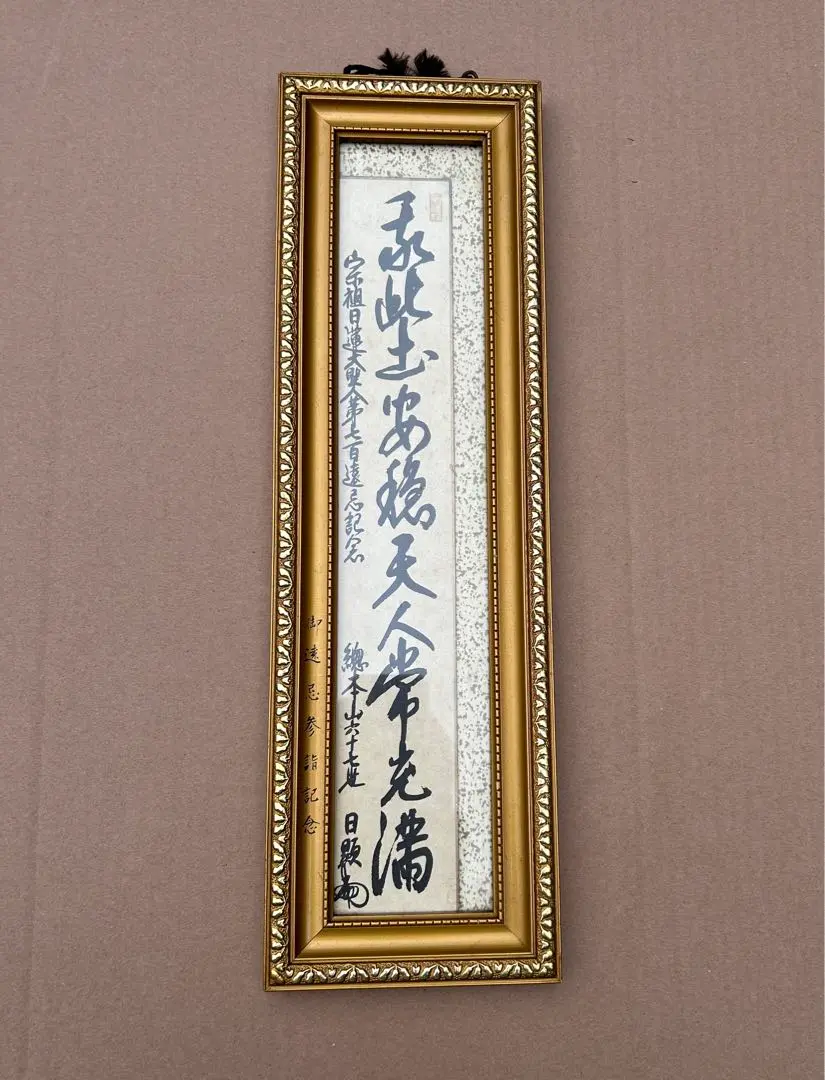 我此土安穏天人常充満
宗祖日蓮大聖人第七百遠忌記念
總本山六十七世 日顕
御遠忌参詣記念